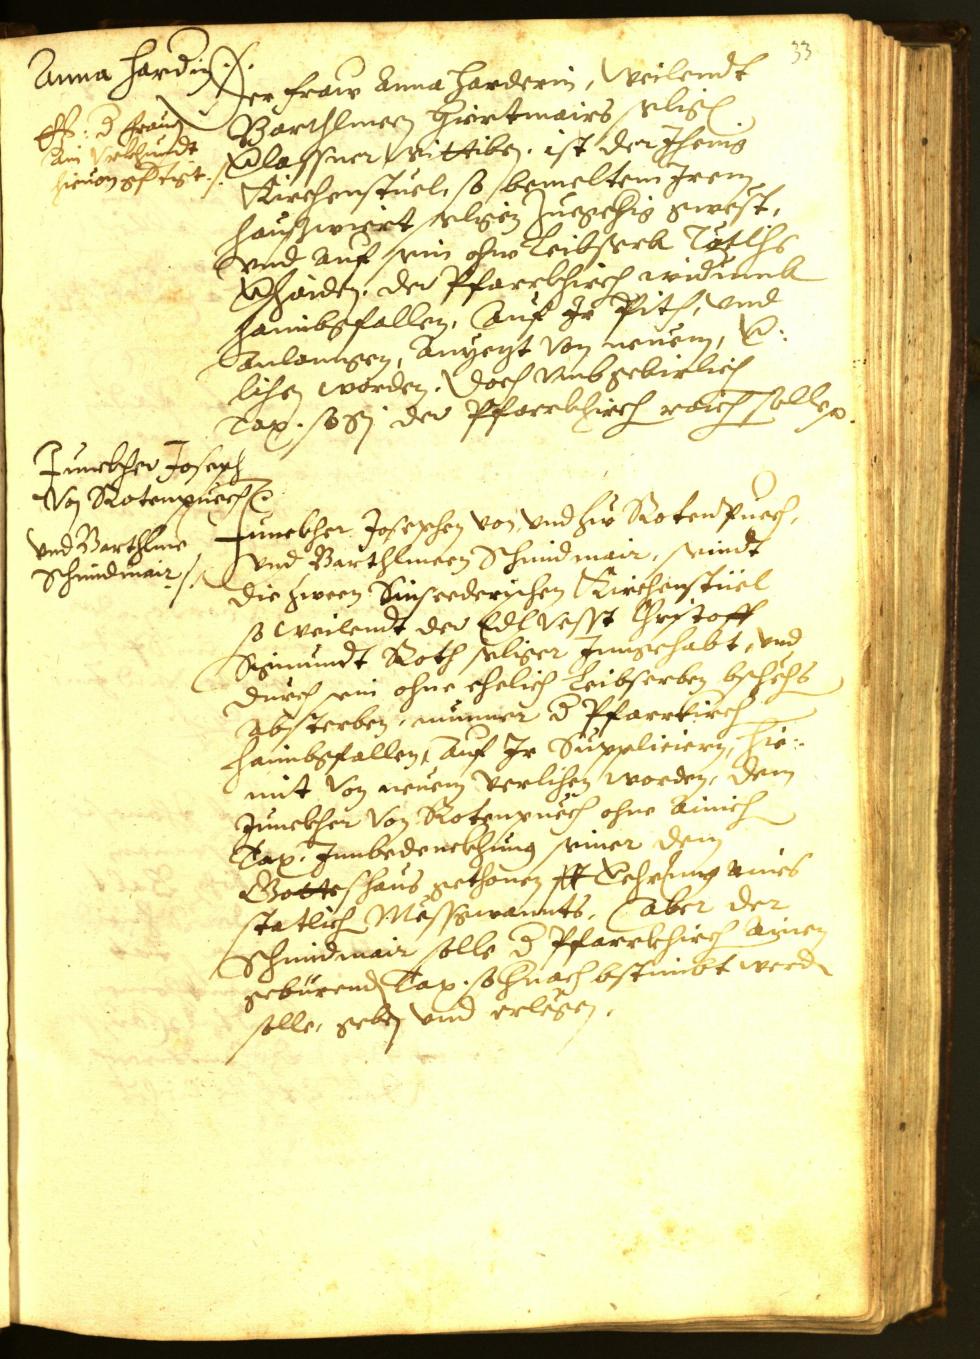 33
Anna Harderin
Der fraw Anna Harderin, Weilendt
ist: d frauen
ain Urkhundt
hieuon gfertigt
Barthlmeen Hirtmairs seligen
verlassner Wittiben, ist der Jhenig
Kirchenstuel, so bemeltem Jrem
Hausswiert seligen zuegehig gwest,
vnd auf sein ohne Leibserb Tötlichs
der Pfarrkhirch widumb
haimbgfallen, Auf Jr Pitt, vnd
Anlangen, Anyezt Von neuem, ver:
lihen worden. Doch vmb gebürlich
Tax, so Sy der Pfarrkhirch raichen solle.
Junckher Joseph
Von Rotenpuech
vnd Barthlme
Schmidmair
Junckher Josephen von vnd zu Rotenpuech,
vnd Barthlmeen Schmidmair, seindt
die zween Kirchenstüel
so Weilendt der Edl Vesst Christoff
Sigmundt Roth seliger Inngehabt, vnd
durch sein ohne ehelich Leibserben bschehs
absterben, nunmer d Pfarrkirch
haimbgfallen, Auf Jr Suppliciern, hie:
mit von neuem verlihen worden, dem
Junckher Von Rotenpuech ohne Ainich
Tax, Innbedenckhung seiner dem
Gottsshaus gethonen Verehrung aines
statlich Messgwannts, Aber der
Schmidmair solle d Pfarrkhirch Ainen
gebürend Tax, so hernach bstimbt werd
solle, geben vnd erlegen.